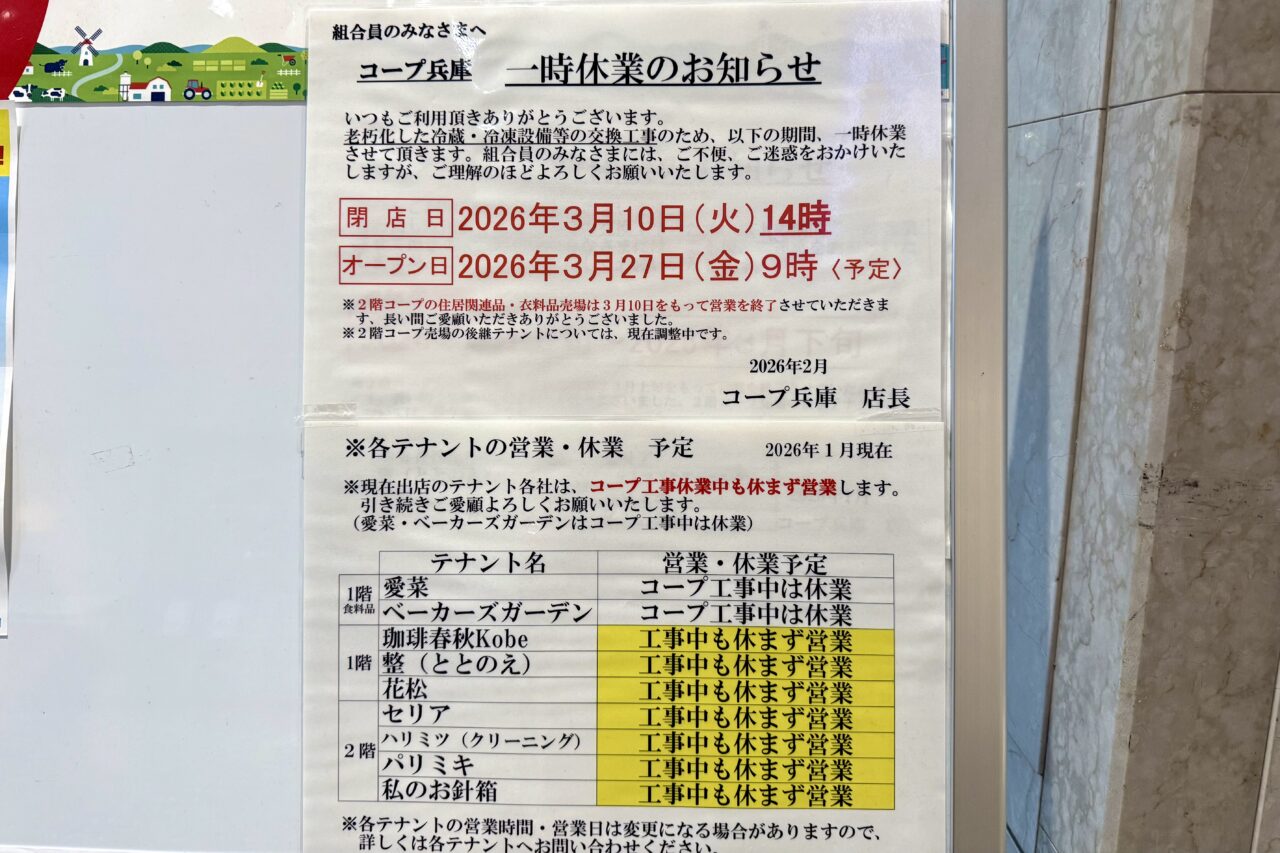 組合員のみなさまへ
コープ兵庫 一時休業のお知らせ
いつもご利用頂きありがとうございます。
老朽化した冷蔵・冷凍設備等の交換工事のため、以下の期間、一時休業
させて頂きます。組合員のみなさまには、ご不便、ご迷惑をおかけいた
しますが、ご理解のほどよろしくお願いいたします。
閉店日 2026年3月10日(火)14時
オープン日 2026年3月27日(金)9時〈予定〉
※2階コープの住居関連品・衣料品売場は3月10日をもって営業を終了させていただきま
す、長い間ご愛顧いただきありがとうございました。
※2階コープ売場の後継テナントについては、現在調整中です。
2026年2月
コープ兵庫 店長
※各テナントの営業・休業 予定 2026年1月現在
※現在出店のテナント各社は、コープ工事休業中も休まず営業します。
引き続きご愛顧よろしくお願いいたします。
(愛菜・ベーカーズガーデンはコープ工事中は休業)
テナント名 営業・休業予定
1階 食料品 愛菜 コープ工事中は休業
ベーカーズガーデン コープ工事中は休業
1階 珈琲春秋Kobe 工事中も休まず営業
整(ととのえ) 工事中も休まず営業
花松 工事中も休まず営業
2階 セリア 工事中も休まず営業
ハリミツ(クリーニング) 工事中も休まず営業
パリミキ 工事中も休まず営業
私のお針箱 工事中も休まず営業
※各テナントの営業時間・営業日は変更になる場合がありますので、
詳しくは各テナントへお問い合わせください。